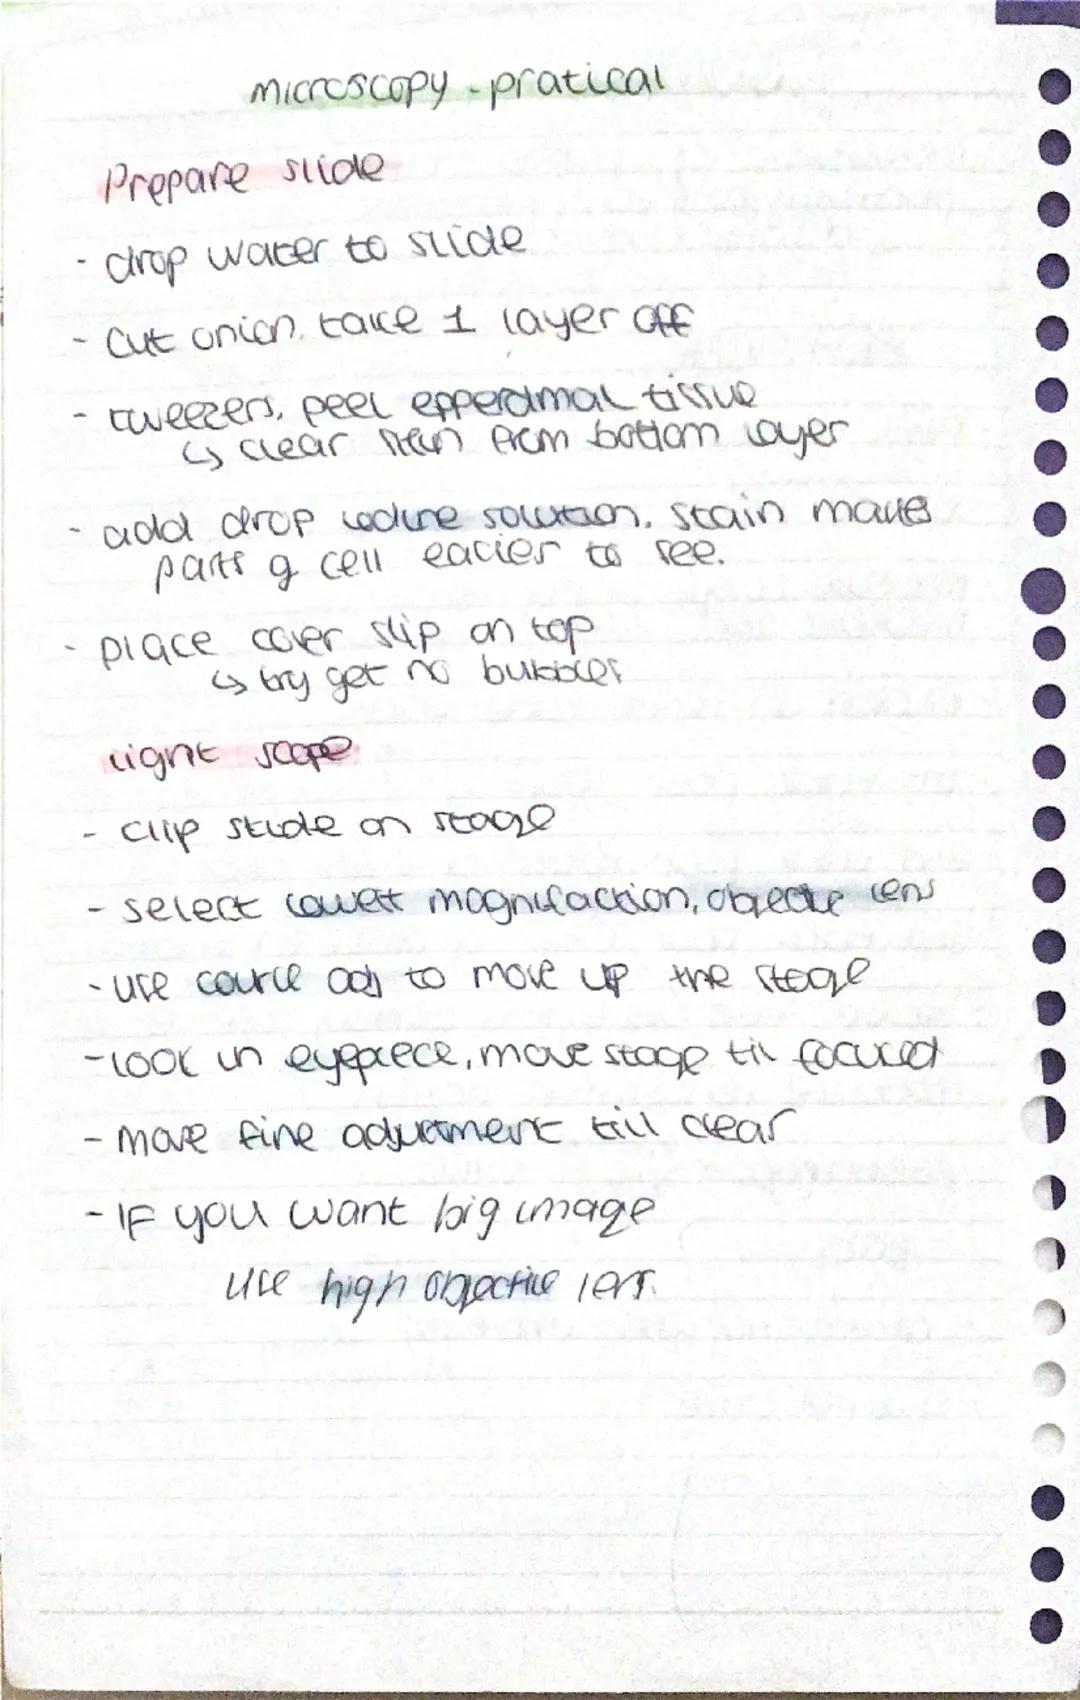 microscopy - pratical
Prepare slide
- drop water to slide
- Cut onion. take 1 layer off
- tweezers, peel epperdmal tissue
↳ clear skin from bottom layer
- add drop iodine solution. stain makes
parts of cell eacier to see.
- place cover slip on top
↳ try get no bubbles
light scope
- clip slide on stage
- select lowest magnifaction, objective lens
- use course adj to move up the stage
- look in eyepiece, move stage til focused
- move fine adjustment till clear
- IF you want big image
use high objective lens.